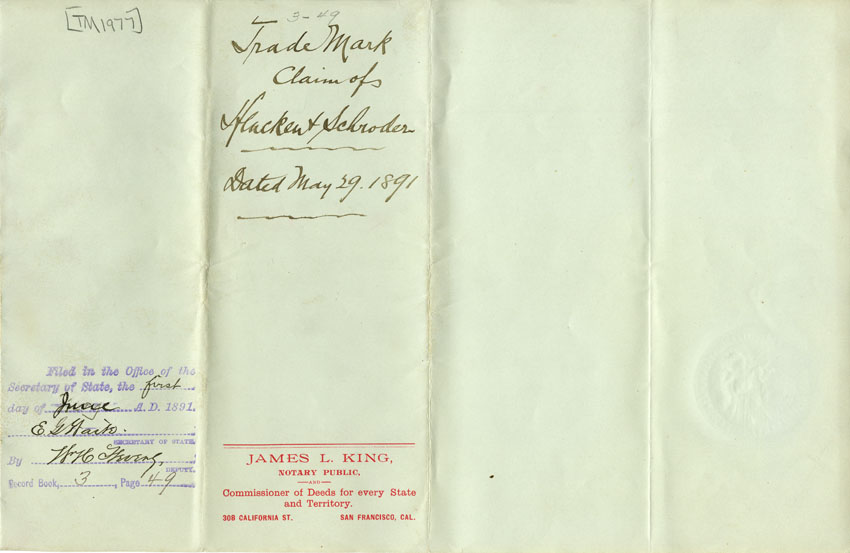 [TM1977]
3-49
Trade Mark
Claim of
& Schroder
Dated May 29. 1891
Filed in the Office of the
Secretary of State, the first
day of June A.D. 1891.
E G Waite.
SECRETARY OF STATE
By W H
DEPUTY.
Record Book, 3, Page 49
JAMES L. KING,
NOTARY PUBLIC,
—AND—
Commissioner of Deeds for every State
and Territory.
308 CALIFORNIA ST. SAN FRANCISCO, CAL.